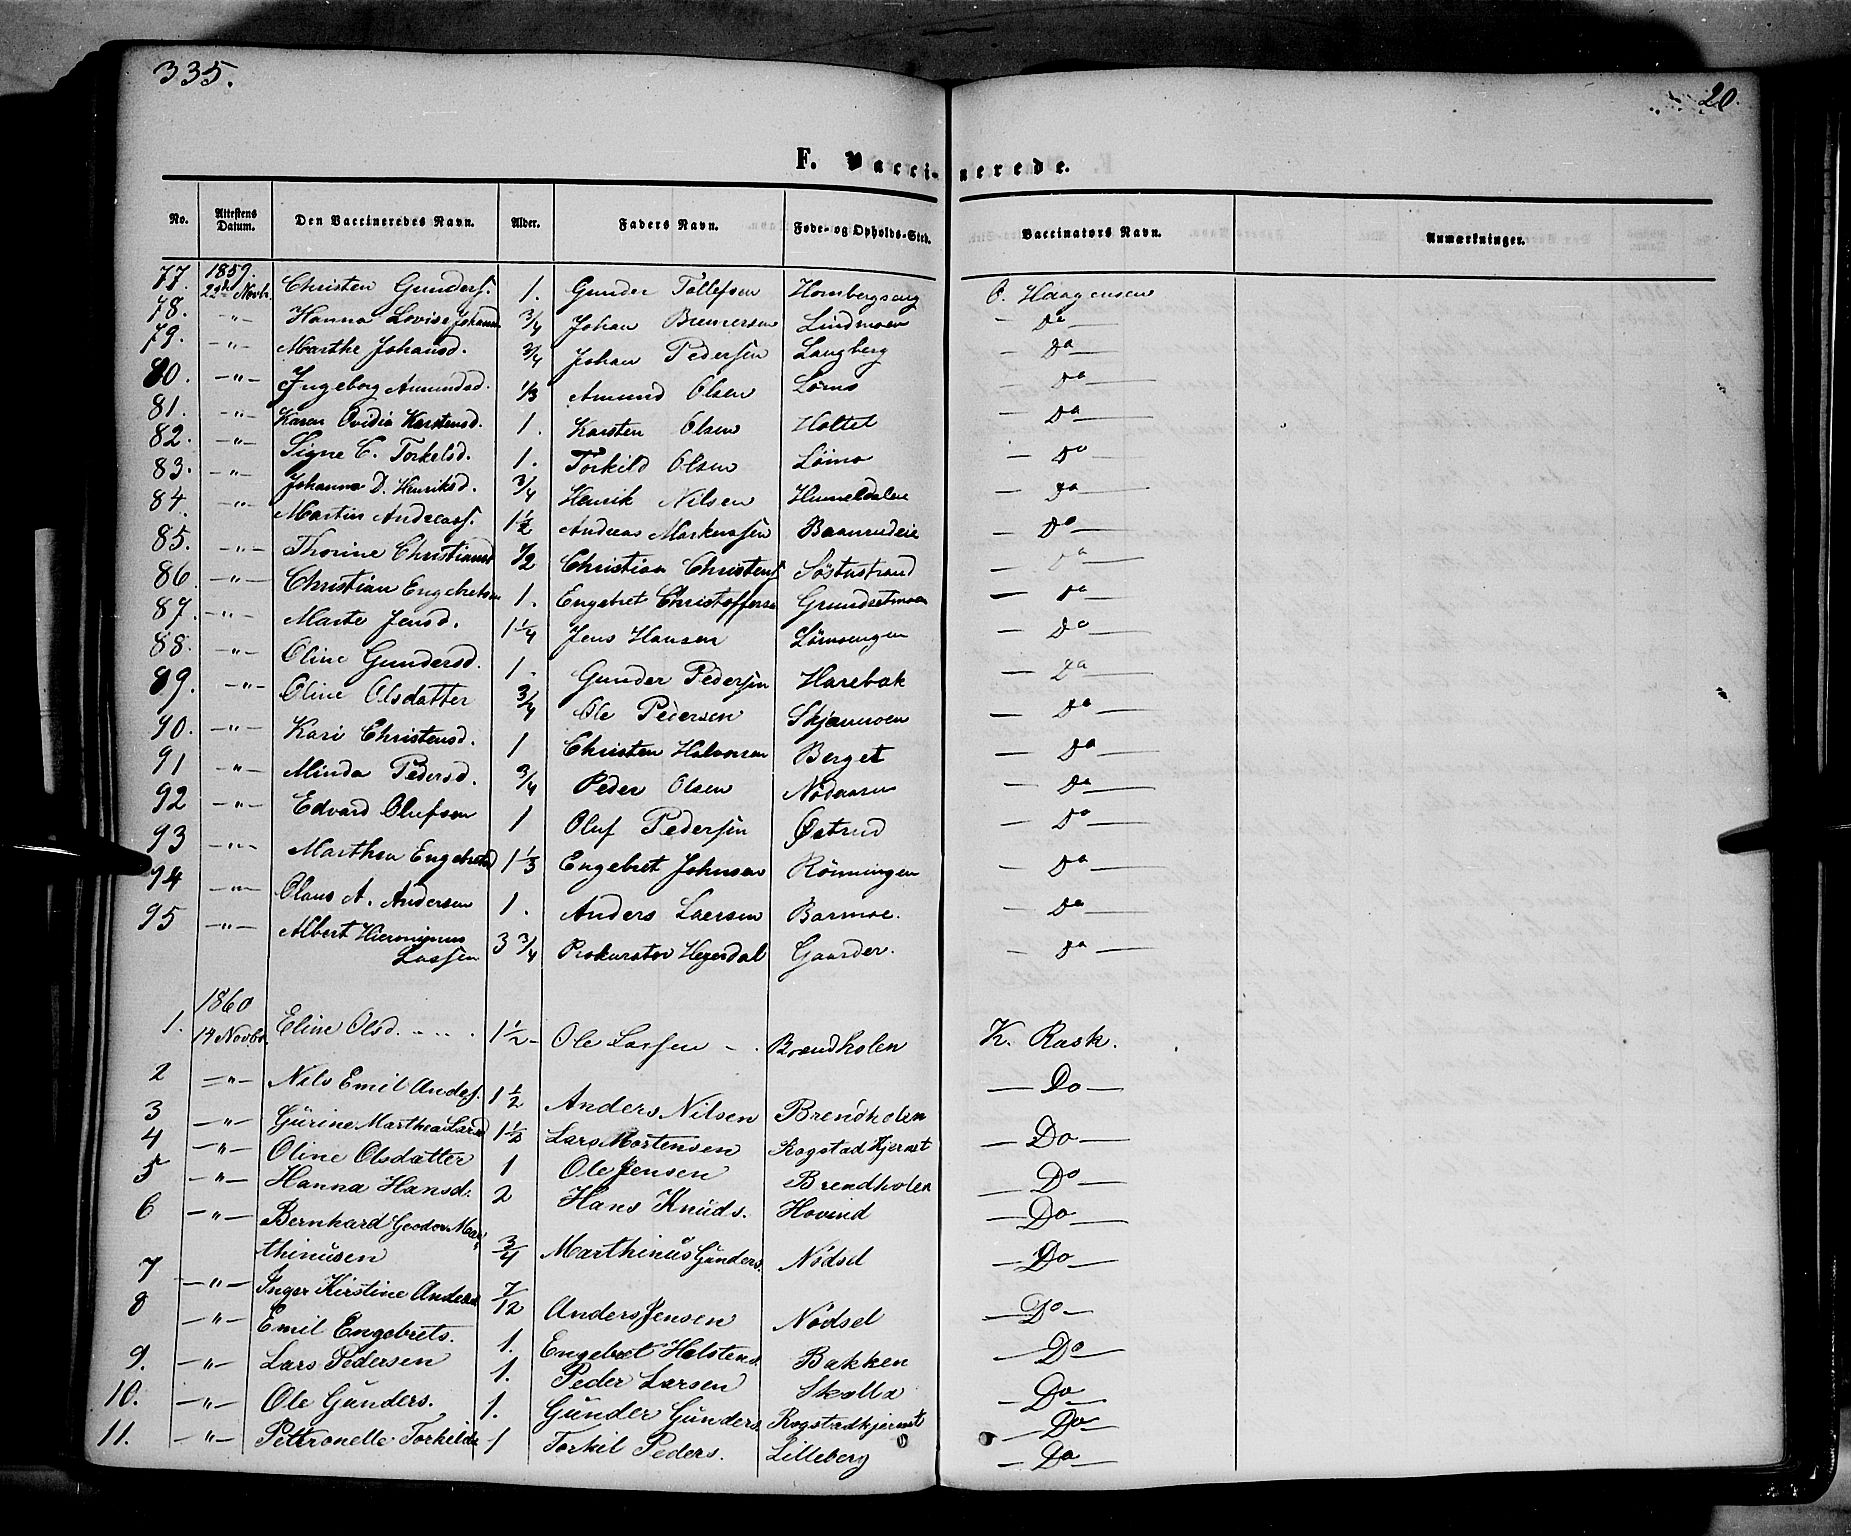 335.
20.
F. Vaccinerede.
No. Attestens Datum. Den Vaccineredes Navn. Alder. Faders Navn. Føde- og Opholds-Sted. Vaccinators Navn. Anmærkninger.
1859.
77. 22de Novbr. Christen Gunders. 1. Gunder Tollefsen Hombergseng O. Haagensen
78. -"- Hanna Lovise Johansd 3/4 Johan Bremersen Lindmoen - Do -
79. -"- Marthe Johansd. 3/4 Johan Pedersen Langberg - Do -
80. -"- Ingeborg Amundsd. 1/3 Amund Olsen Lømo - Do -
81. -"- Karen Ovidia Karstensd. 1. Karsten Olsen Holtet - Do -
82. -"- Signe C. Torkelsd. 1. Torkild Olsen Lømo - Do -
83. -"- Johanna D. Henriksd. 3/4 Henrik Nilsen Hummeldalen - Do -
84. -"- Martin Andreass. 1 1/2 Andreas Markussen Baanrudeie - Do -
85. -"- Thorine Christiansd 1/2 Christian Christens Søstustrand - Do -
86. -"- Christian Engebretsen 1. Engebret Christoffersen Grundsetmoen - Do -
87. -"- Marte Jensd. 1 1/4 Jens Hansen Lømoengen - Do -
88. -"- Oline Gundersd. 1- Gunder Pedersen Harebak - Do -
89. -"- Oline Olsdatter 3/4 Ole Pedersen Skjærmoen - Do -
90. -"- Kari Christensd. 1 Christen Halvorsen Berget - Do -
91 -"- Minda Pedersd. 3/4 Peder Olsen Nødaasen - Do -
92 -"- Edvard Olufsen 1 Oluf Pedersen Østrud - Do -
93 -"- Marthea Engebretsd 1 1/3 Engebret Johnsen Rönningen - Do -
94 -"- Olaus A. Andersen 1. Anders Larsen Barmoe. - Do -
95 -"- Albert Hieronymus
Lassen 3 3/4 Prokurator Heyerdal Gaarder. - Do -
1860
1. 14 Novbr. Eline Olsd. 1 1/2 - Ole Larsen - Brændholen K. Rask.
2 -"- Nils Emil Anders. 1 1/2 Anders Nilsen Brendholen - Do -
3 -"- Gurine Marthea Larsd 1 1/2 Lars Mortensen Rogstadkjernet - Do -
4 -"- Oline Olsdatter 1 Ole Jensen Brendholen - Do -
5 -"- Hanna Hansd. 2 Hans Knuds. Hovind - Do -
6 -"- Bernhard Geodor Mar-
thinusen 3/4 Marthinus Gunders. Nödsel - Do -
7 -"- Inger Kirstine Andersd 7/12 Anders Jensen Nödsel - Do -
8 -"- Emil Engebrets. 1. Engebret Halstens. Bakken - Do -
9. -"- Lars Pedersen 1. Peder Larsen Skalla - Do -
10. -"- Ole Gunders. 1. Gunder Gunders. Rogstadkjernet - Do -
11. -"- Petronelle Torkildsd 1 Torkil Peders. Lilleberg - Do -